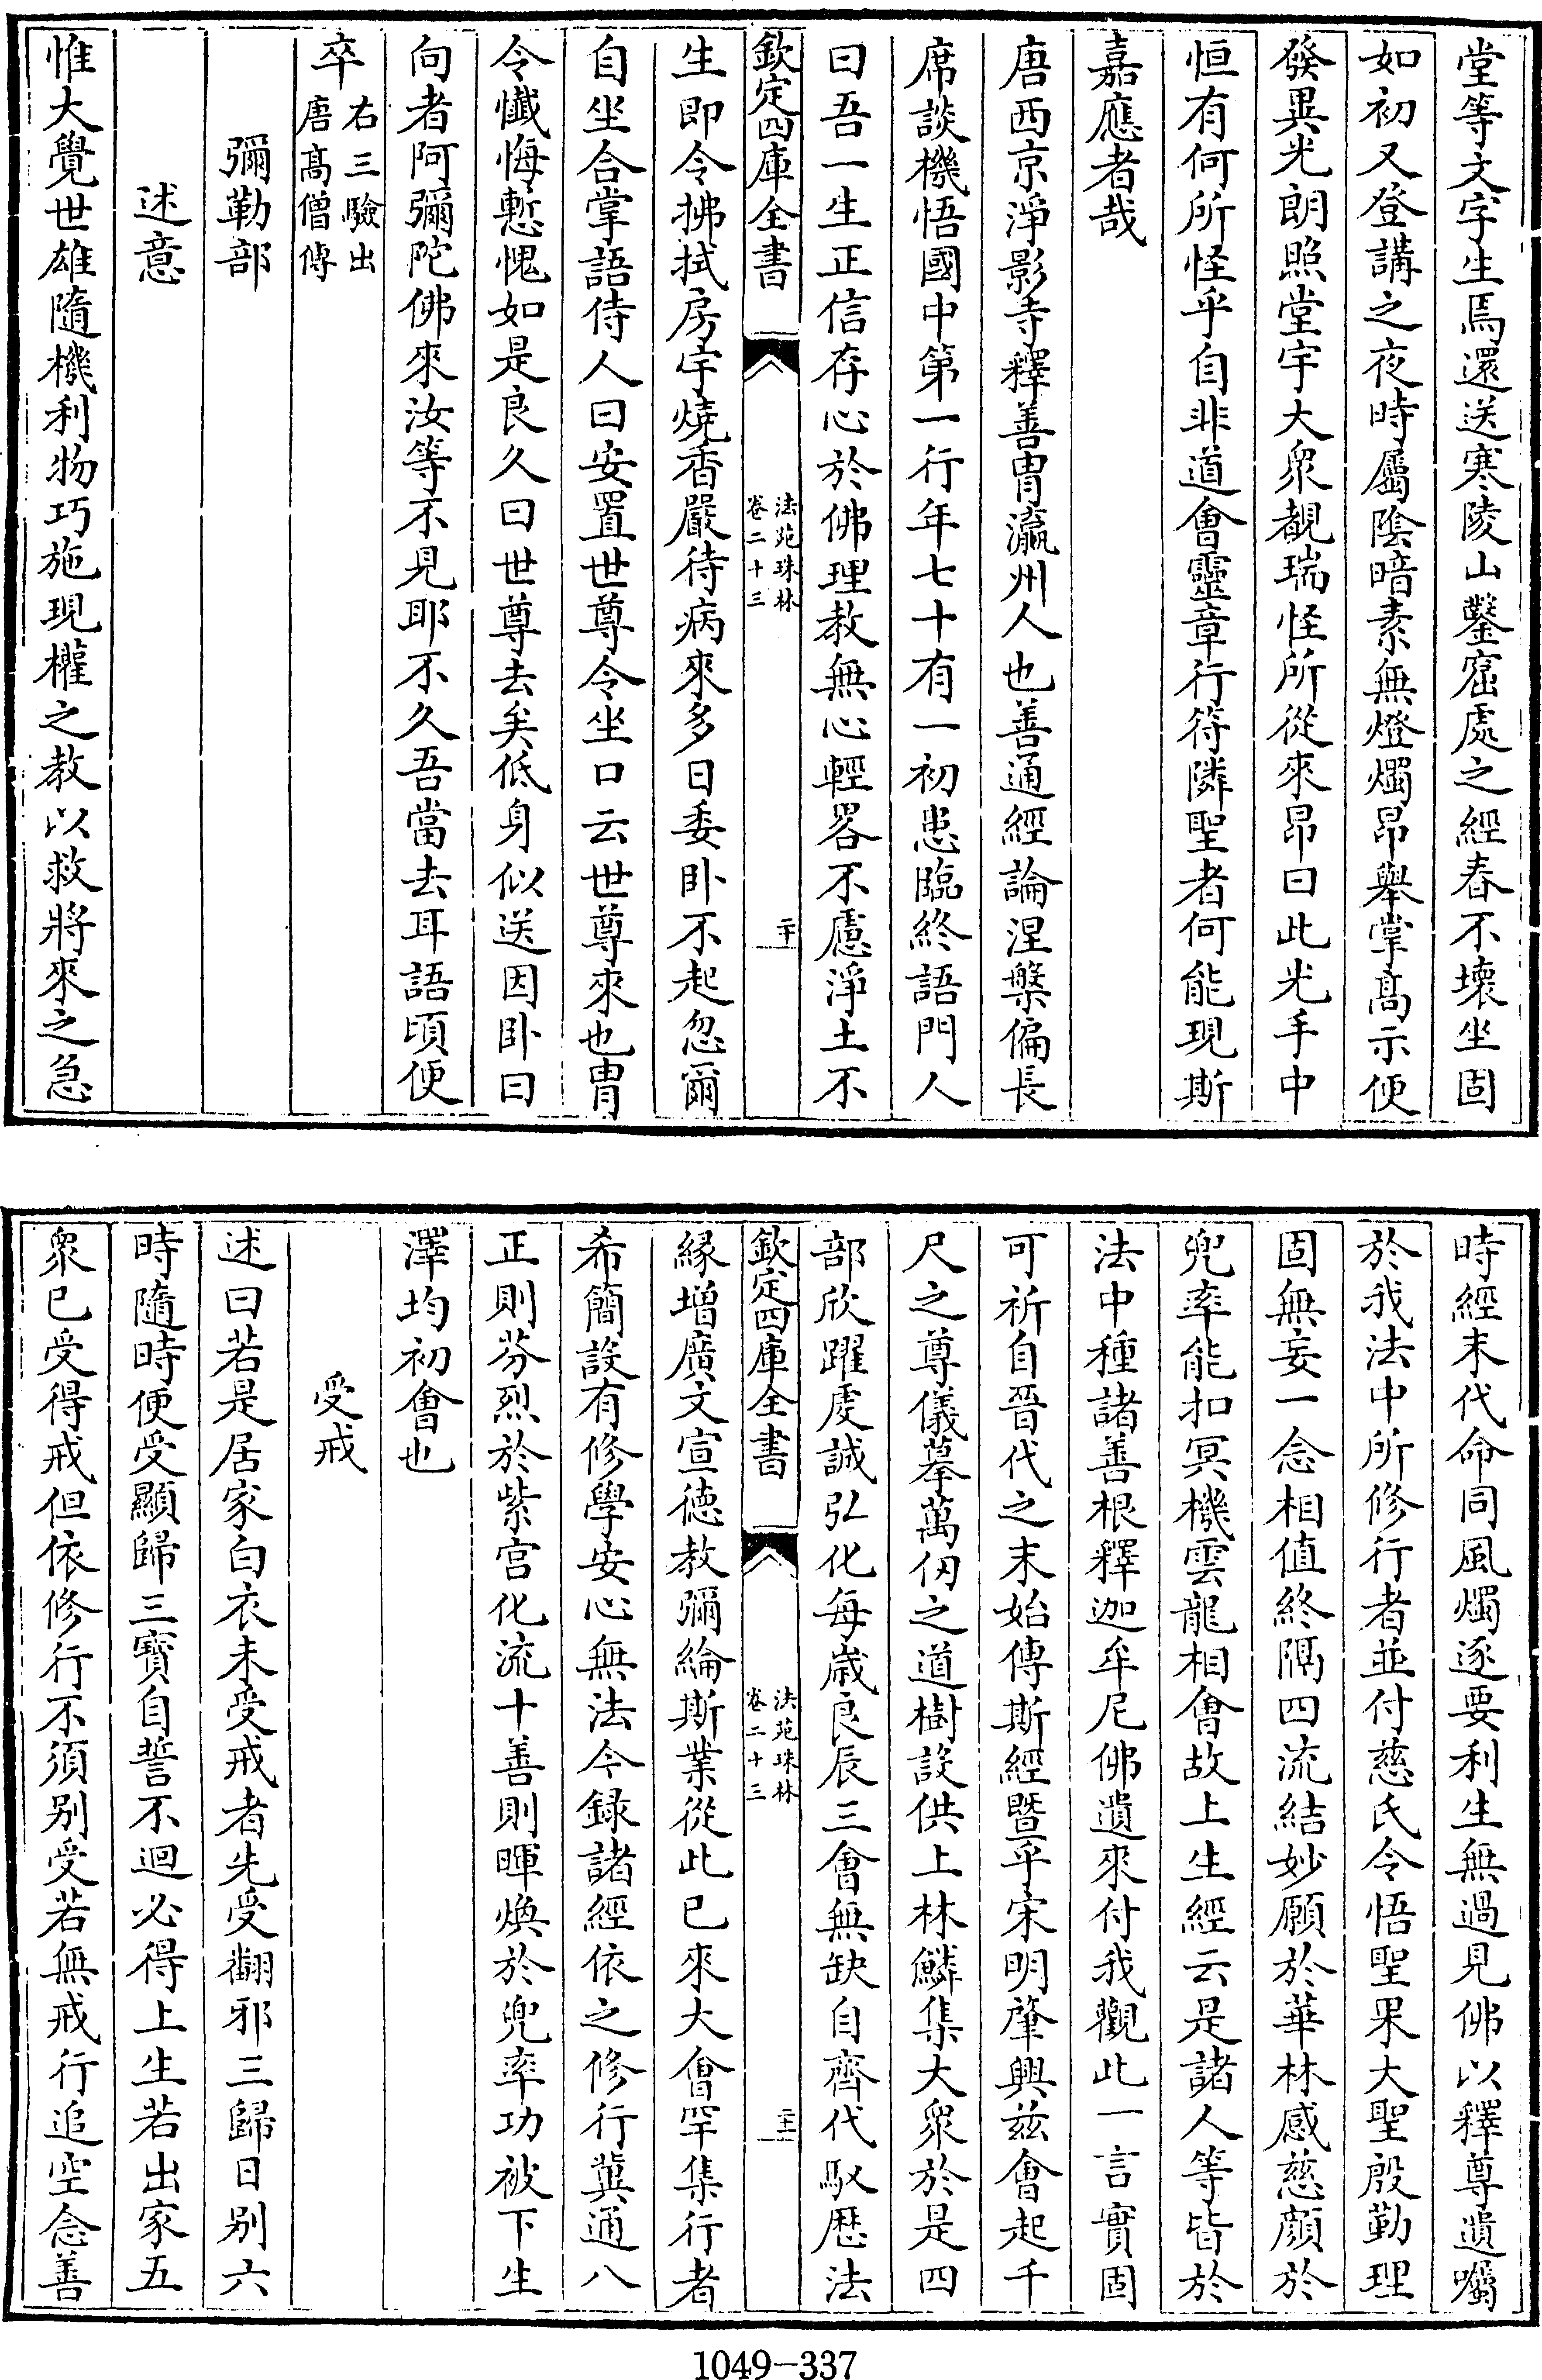 堂等文字生焉還送寒陵山鑿窟處之經春不壞坐固
如初又登講之夜時屬陰暗素無燈燭昂舉掌髙示便
發異光朗照堂宇大衆覩瑞怪所從來昂曰此光手中
恒有何所怪乎自非道會靈章行符隣聖者何能現斯
嘉應者哉
唐西京淨影寺釋善胄瀛州人也善通經論涅槃偏長
席談機悟國中第一行年七十有一初患臨終語門人
曰吾一生正信存心於佛理教無心輕畧不慮淨土不
欽定四庫全書
法苑珠林
卷二十三
二十
生即令拂拭房宇燒香嚴待病來多日委卧不起忽爾
自坐合掌語侍人曰安置世尊令坐口云世尊來也胄
今懺悔慙愧如是良久曰世尊去矣低身似送因卧曰
向者阿彌陀佛來汝等不見耶不久吾當去耳語頃便
卒右三驗出
唐髙僧傳
彌勒部
述意
惟大覺世雄隨機利物巧施現權之教以救將來之急
時經末代命同風燭逐要利生無過見佛以釋尊遺囑
於我法中所修行者並付慈氏令悟聖果大聖殷勤理
固無妄一念相值終隔四流結妙願於華林感慈顔於
兜率能扣冥機雲龍相會故上生經云是諸人等皆於
法中種諸善根釋迦牟尼佛遺來付我觀此一言實固
可祈自晉代之末始傳斯經曁乎宋明肇興兹會起千
尺之尊儀摹萬仞之道樹設供上林鱗集大衆於是四
部欣躍虔誠弘化每嵗良辰三會無缺自齊代馭歴法
欽定四庫全書
法苑珠林
卷二十三
二十一
緣增廣文宣徳教彌綸斯業從此已來大會罕集行者
希簡設有修學安心無法今録諸經依之修行冀通八
正則芬烈於紫宫化流十善則暉煥於兜率功被下生
澤均初會也
受戒
述曰若是居家白衣未受戒者先受翻邪三歸日别六
時隨時便受顯歸三寶自誓不迴必得上生若出家五
衆已受得戒但依修行不須别受若無戒行追空念善
1049-337